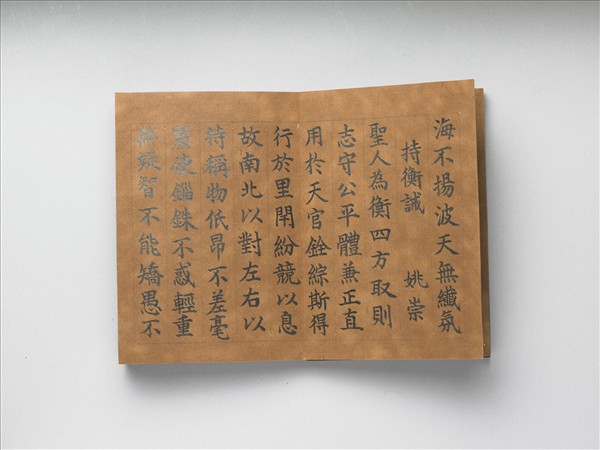 海不揚波天無纖氛
持衡誡 姚崇
聖人為衡四方取則
志守公平體兼正直
用於天官銓綜斯得
行於里閈紛競以息
故南北以對左右以
持稱物低昂不差毫
釐使錙銖不惑輕重
無疑智不能矯愚不